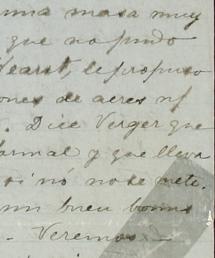 una masa muy
que no pudo
Hearst, le propuso
ones de acres y
. Dice Verger que
formal y que lleva
si nó no se mete.
un buen bonus
- Veremos -